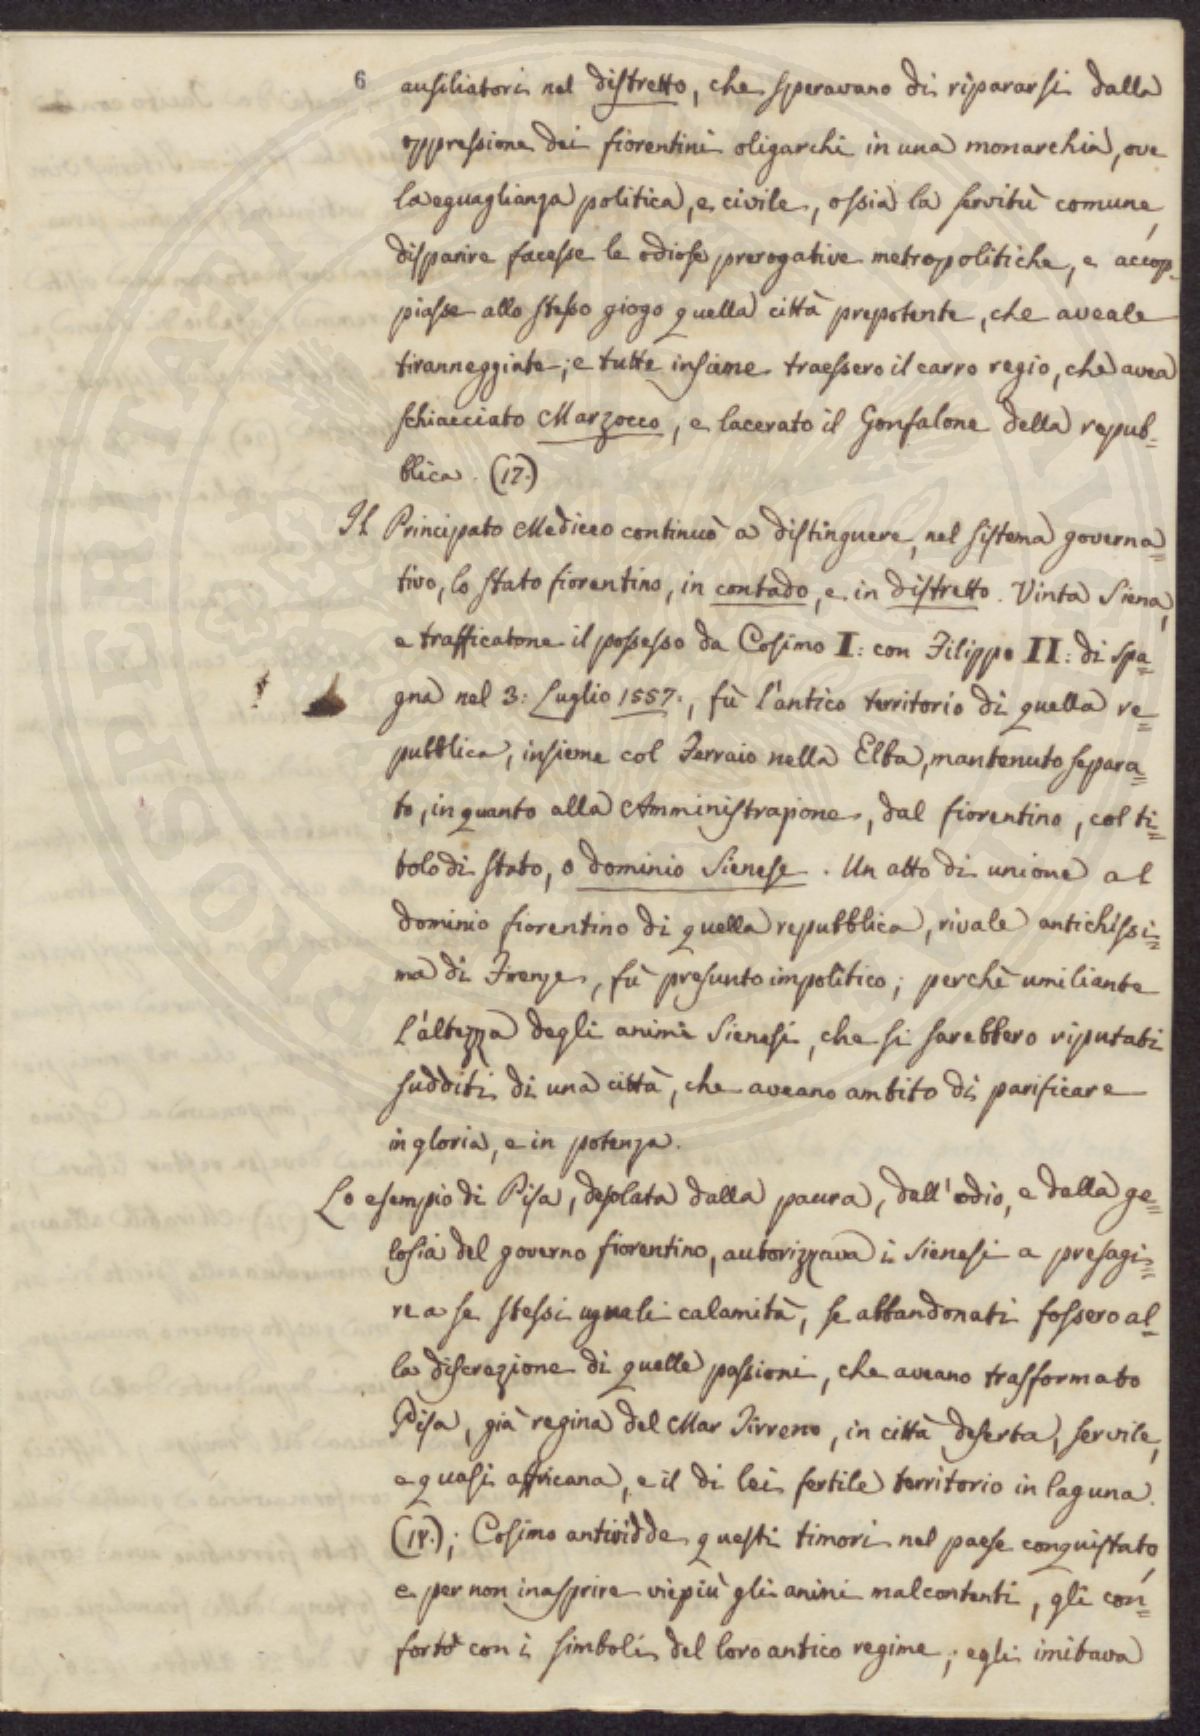 6
ausiliatori nel distretto, che speravano di ripararsi dalla
oppressione dei fiorentini oligarchi in una monarchia, ove
la eguaglianza politica, e civile, ossia la servitù comune,
disparire facesse le odiose prerogative metropolitiche, e accop-
piasse allo stesso giogo quella città prepotente, che aveale
tiranneggiate; e tutte insieme traessero il carro regio, che avea
schiacciato Marzocco, e lacerato il Gonfalone della repub=
blica. (17.)
Il Principato Mediceo continuò a distinguere, nel sistema governa=
tivo, lo stato fiorentino, in contado, e in distretto. Vinta Siena,
e trafficatone il possesso da Cosimo I: con Filippo II: di Spa=
gna nel 3: Luglio 1557:, fù l'antico territorio di quella re=
pubblica, insieme col Ferraio nella Elba, mantenuto separa=
to, in quanto alla Amministrazione, dal fiorentino, col ti=
tolo di stato, o dominio Sienese. Un atto di unione al
dominio fiorentino di quella repubblica, rivale antichissi=
ma di Firenze, fù presunto impolitico; perchè umiliante
l'altezza degli animi Sienesi, che si sarebbero riputati
sudditi di una città, che aveano ambito di parificare
in gloria, e in potenza.
Lo esempio di Pisa, desolata dalla paura, dall'odio, e dalla ge=
losia del governo fiorentino, autorizzava i Sienesi a presagi=
re a se stessi uguali calamità, se abbandonati fossero al=
la discrezione di quelle passioni, che aveano trasformato
Pisa, già regina del Mar Tirreno, in città deserta, servile,
e quasi affricana, e il di lei fertile territorio in laguna.
(18.); Cosimo antividde questi timori nel paese conquistato,
e per non inasprire viepiù gli animi malcontenti, gli con=
fortò con i simboli del loro antico regime; egli imitava
PROSPERITATI